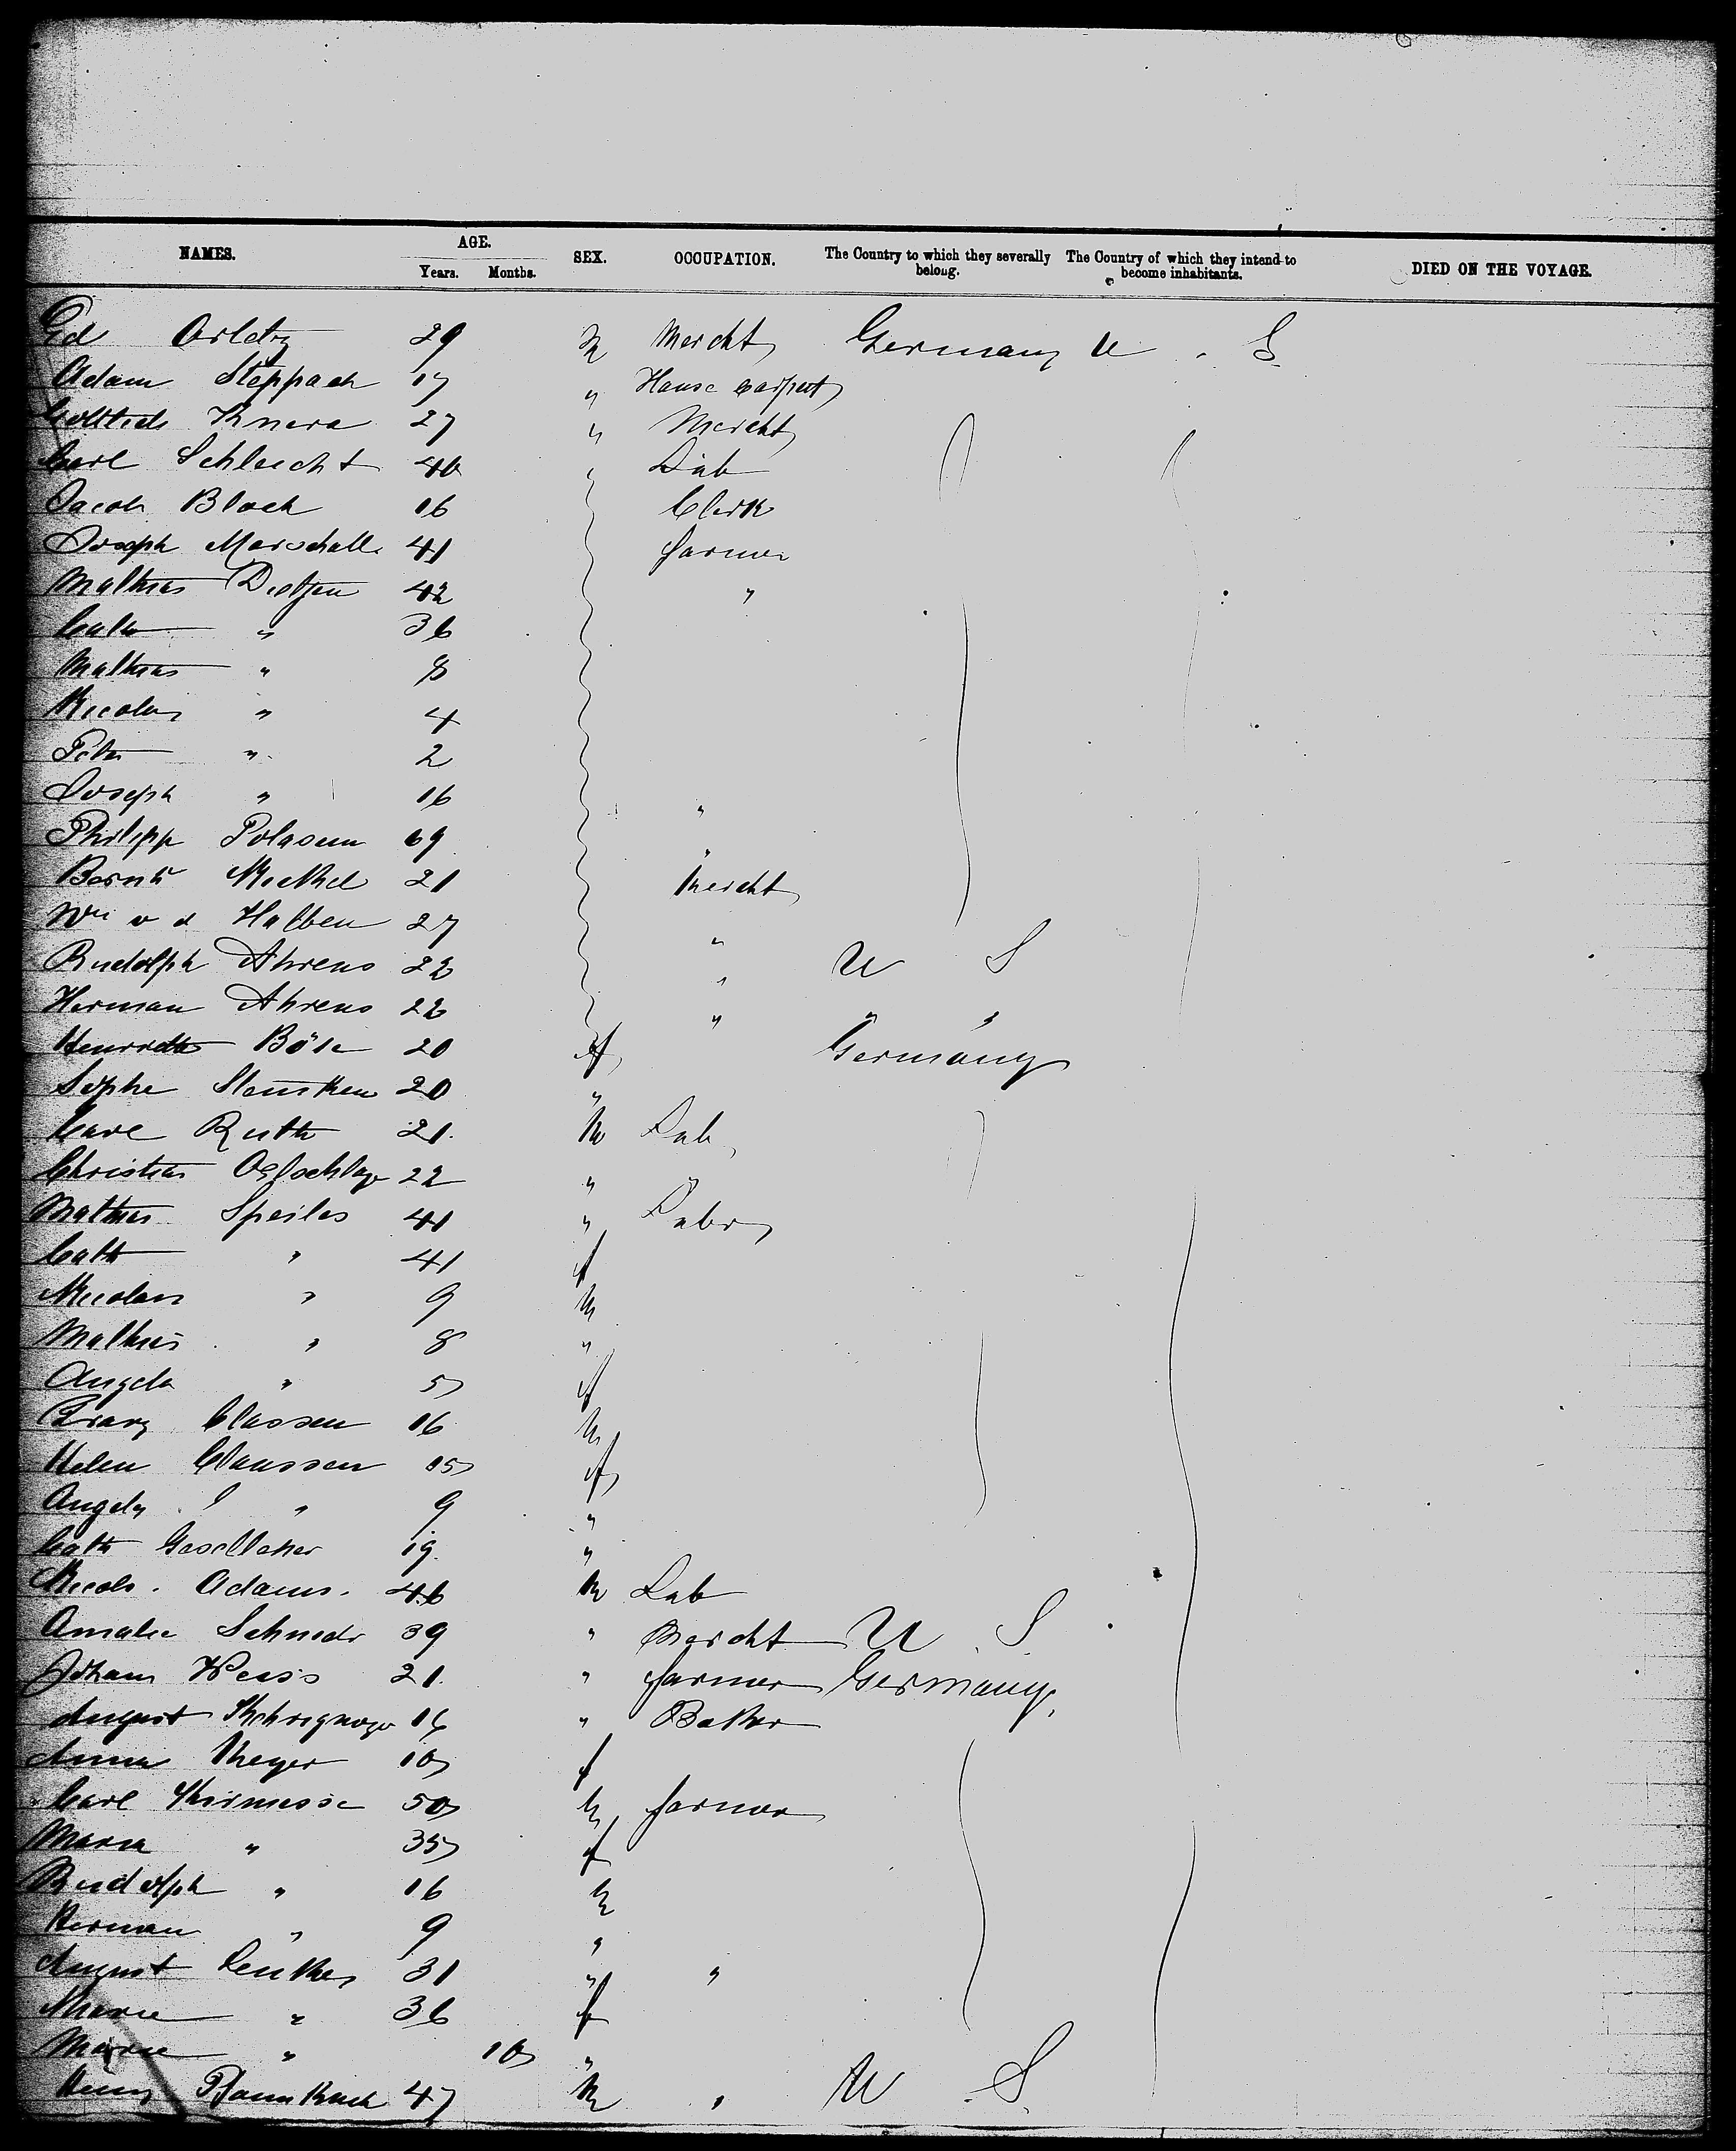 NAMES. AGE. SEX. OCCUPATION. The Country to which they severally belong. The Country of which they intend to become inhabitants. DIED ON THE VOYAGE.
Years. Months.
Ed 29 M Mercht Germany U S
Adam Steppach 17 " House
27 " Mercht
Carl Schlecht 40 Lab
Jacob Bloch 16 Clerk
Joseph Marschall 41 farmer
Mathias Dietzen 42 "
Cath " 36
Mathias " 8
Nicolas " 4
Peter " 2
Joseph " 16 "
Philipp 69 "
21 Mercht
Wm v d Halben 27 "
Rudolph Ahrens 22 " U S
Herman Ahrens 22 " " "
Böse 20 f Germany
Sophe 20 "
Carl Ruth 21 M Lab
Christian 22 " "
Mathias Speiles 41 " Labr
Cath " 41 f
Nicolas " 9 M
Mathias " 8 "
Angela " 5 f
Franz Classen 16 M
Helen Claussen 15 f
Angela " 9 "
Cath 19 "
Nicols. Adams. 46 M Lab
Amalie Schneidr 39 " Mercht U S
Johann Weiss 21 " farmer Germany
August 16 " Baker
Anna Meyer 10 f
Carl Kirmesse 50 M farmer
Maria " 35 f
Rudolph " 16 M
Herman " 9 "
August 31 " "
Marie " 36 f
Marie " 10 "
Henry 47 M " U S